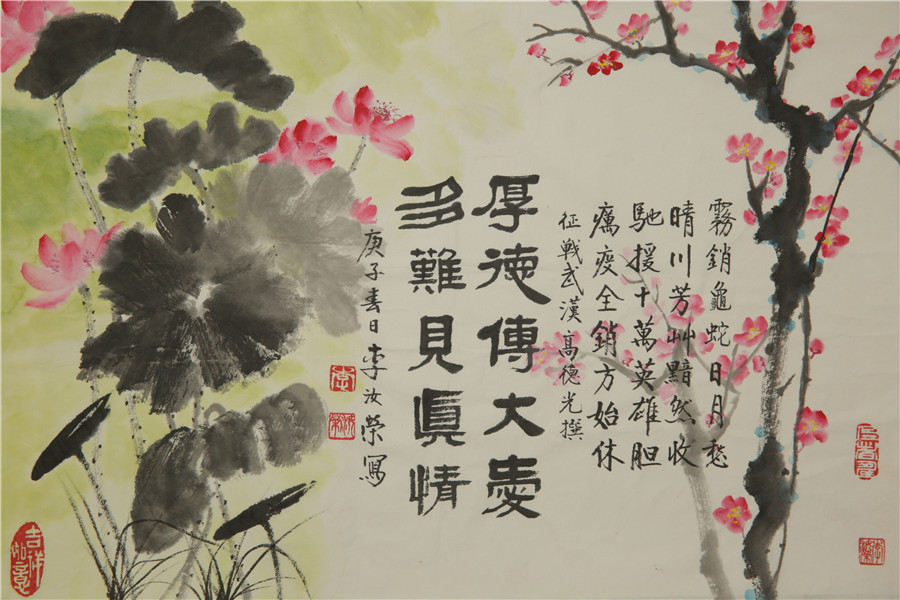 霧銷龜蛇日月愁
晴川芳艸黯然收
馳援十萬英雄胆
癘疫全銷方始休
征戰武漢高德光撰
厚德傳大愛
多難見真情
庚子春日李汝榮寫
吉祥如意